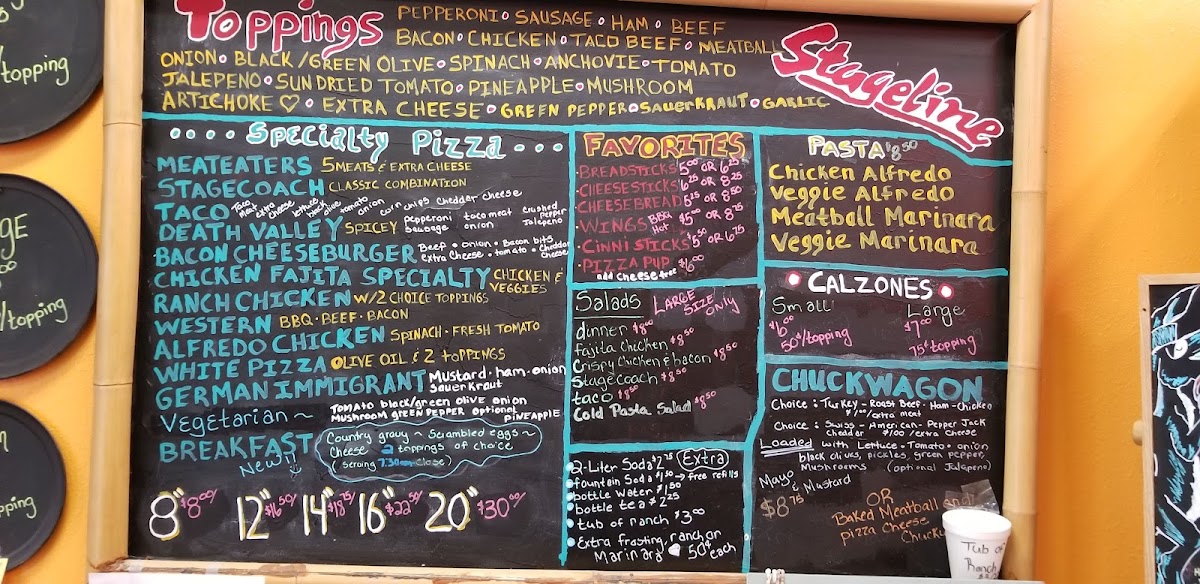 Toppings
PEPPERONI • SAUSAGE • HAM • BEEF
BACON • CHICKEN • TACO BEEF • MEATBALL
ONION • BLACK/GREEN OLIVE • SPINACH • ANCHOVIE • TOMATO
JALEPENO • SUN DRIED TOMATO • PINEAPPLE • MUSHROOM
ARTICHOKE ♡ • EXTRA CHEESE • GREEN PEPPER • SAUERKRAUT • GARLIC
Stageline
.... Specialty Pizza ...
MEATEATERS 5 MEATS & EXTRA CHEESE
STAGECOACH CLASSIC COMBINATION
TACO Taco meat extra cheese lettuce black olive tomato onion corn chips cheddar cheese
DEATH VALLEY SPICEY Pepperoni Sausage taco meat onion crushed pepper Jalapeno
BACON CHEESEBURGER Beef • onion • Bacon bits
extra cheese • tomato • cheddar cheese
CHICKEN FAJITA SPECIALTY CHICKEN & VEGGIES
RANCH CHICKEN W/2 CHOICE TOPPINGS
WESTERN BBQ • BEEF • BACON
ALFREDO CHICKEN SPINACH • FRESH TOMATO
WHITE PIZZA OLIVE OIL & 2 TOPPINGS
GERMAN IMMIGRANT Mustard • ham • onion
Sauerkraut
Vegetarian ~ TOMATO black/green olive onion
MUSHROOM GREEN PEPPER optional PINEAPPLE
BREAKFAST
New!
Country gravy ~ Scrambled eggs ~
Cheese 2 toppings of choice
(Serving 7:30am-Close)
8" $8.00 12" $16.50 14" $18.75 16" $22.50 20" $30.00
FAVORITES
• BREADSTICKS 5.00 OR 6.25
• CHEESESTICKS 6.25 OR 8.25
• CHEESEBREAD OR 8.50
• WINGS BBQ Hot $5.00 OR 8.75
• CINNI STICKS $5.50 OR 6.75
• PIZZA PUP $6.00
add cheese free
Salads LARGE SIZE ONLY
dinner $8.00
fajita chicken $8.50
Crispy chicken & bacon $8.50
Stagecoach $8.50
taco $8.50
Cold Pasta Salad $8.50
Extra
• 2-Liter Soda $2.75
• fountain Soda $1.50 → free refills
• bottle water $1.50
• bottle tea $2.25
• tub of ranch $3.00
• Extra frosting, ranch or
Marinara 50¢ each
PASTA $8.50
Chicken Alfredo
Veggie Alfredo
Meatball Marinara
Veggie Marinara
• CALZONES •
Small Large
$6.00 $7.00
50¢/topping 75¢ topping
CHUCKWAGON
Choice: Turkey - Roast Beef - Ham - Chicken
$1.00/extra meat
Choice: Swiss - American - Pepper Jack
Cheddar $1.00/extra cheese
Loaded with Lettuce • Tomato • onion
black olives, pickles, green pepper,
Mushrooms (optional Jalapeno)
Mayo & Mustard
$8.75
OR
Baked Meatball and
pizza cheese
Tub of
Ranch
/topping
GE
/topping
pping